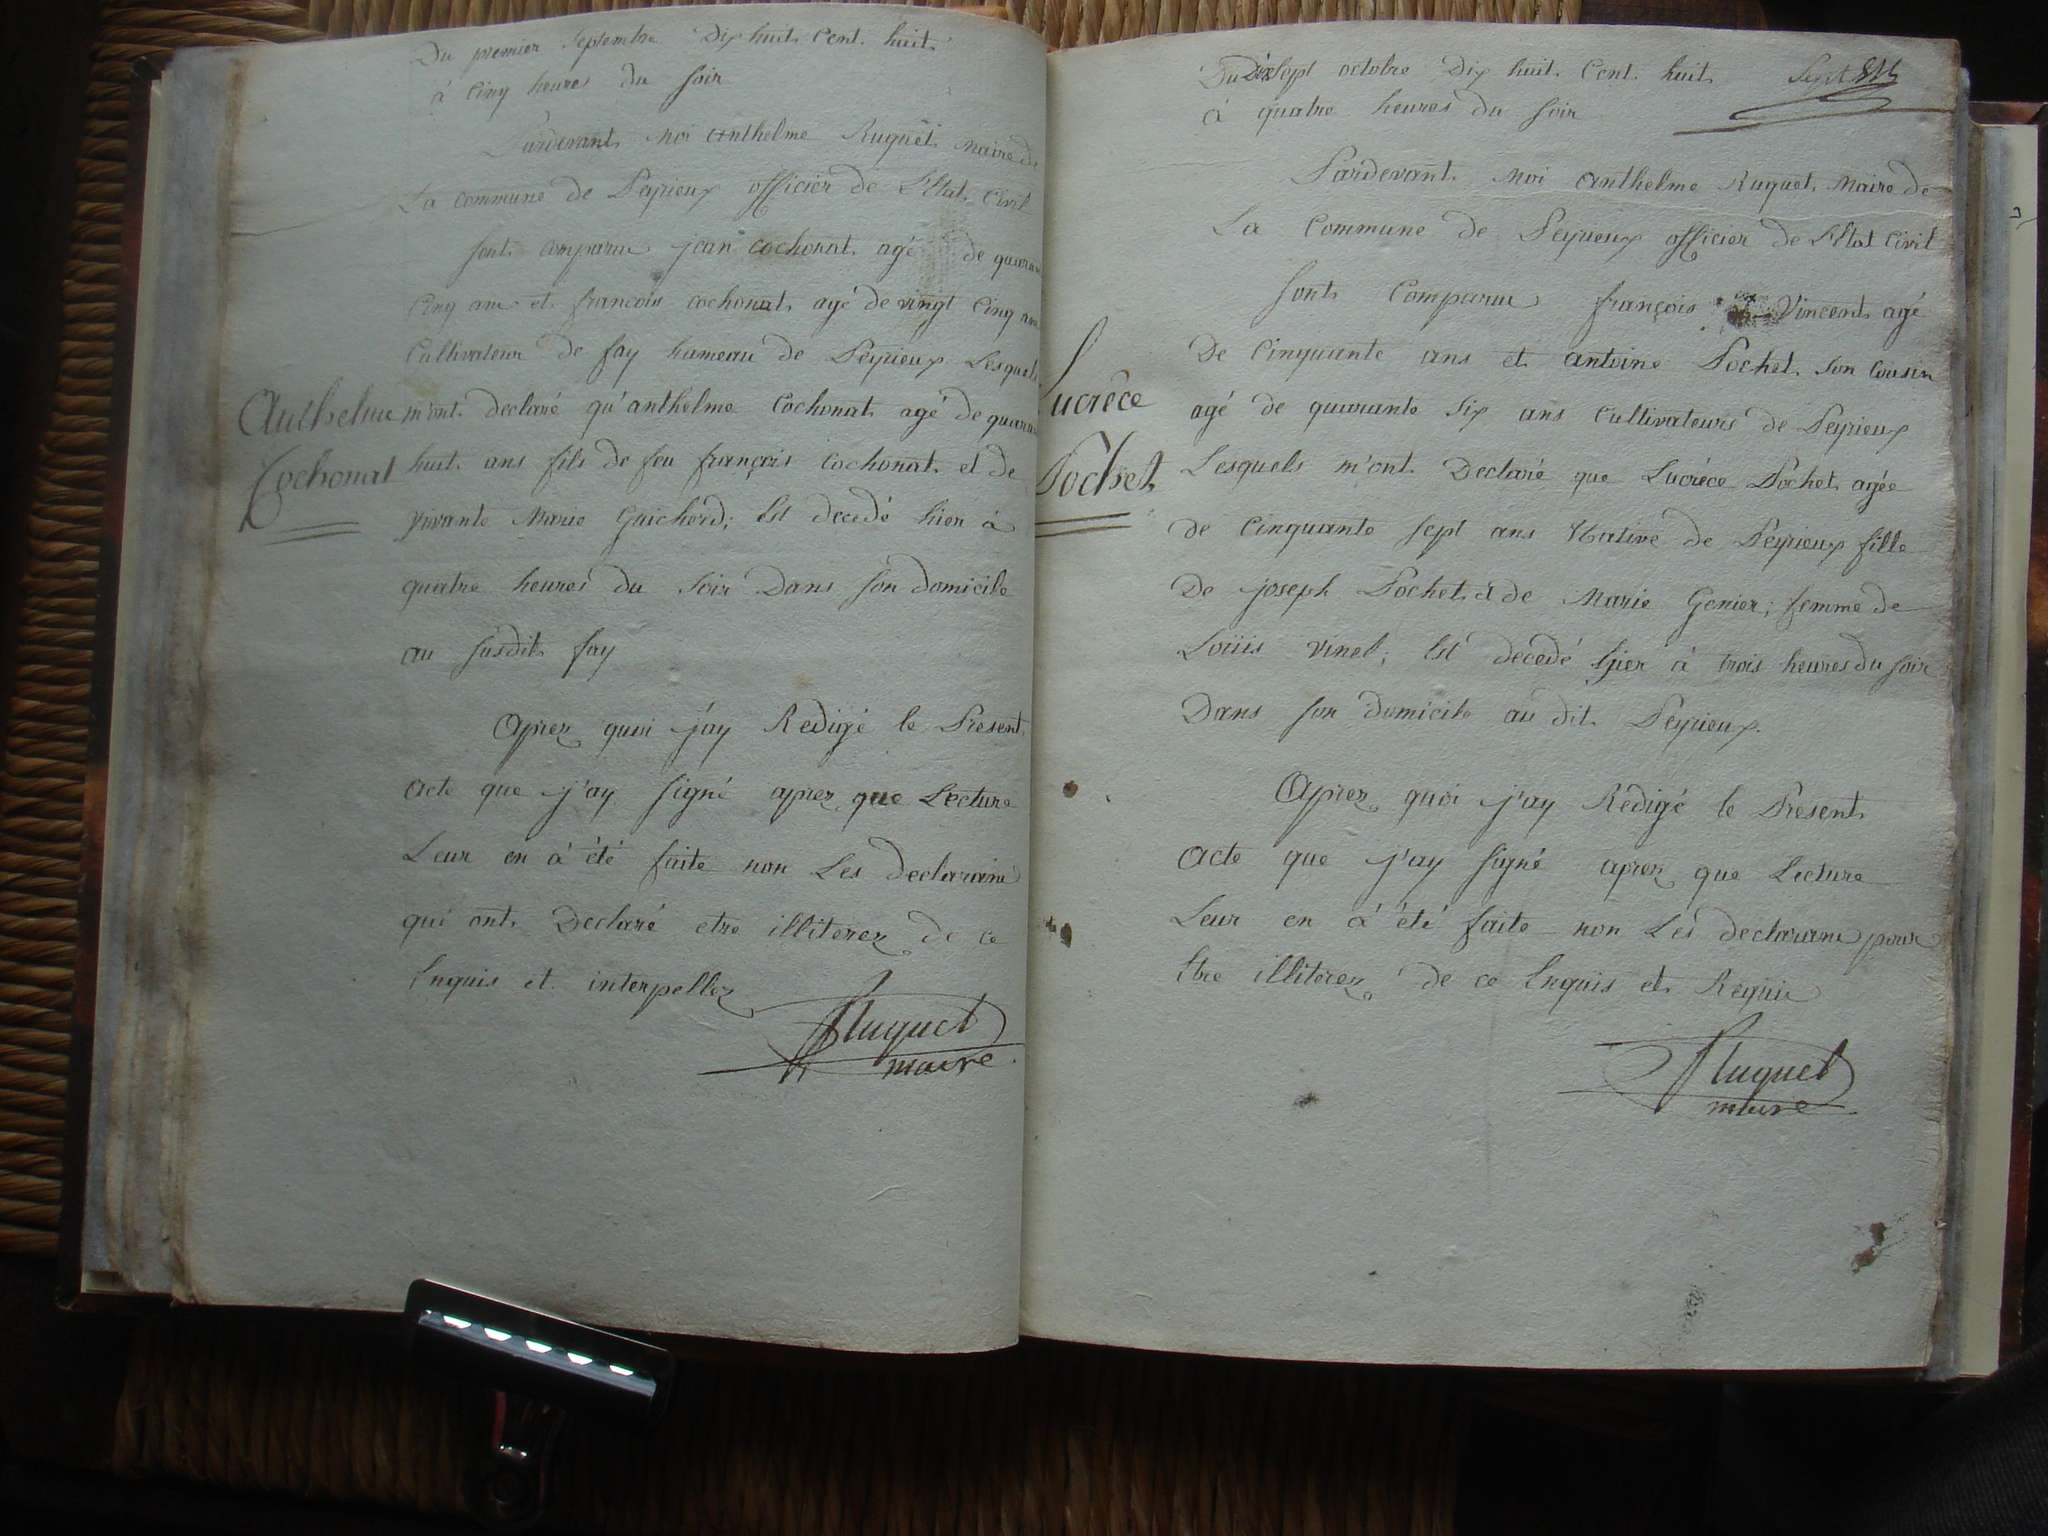 Du premier Septembre Dix huit Cent huit
à Cinq heures du soir
Pardevant Moi anthelme Ruquet Maire de
La commune de Peyrieux officier de l'Etat Civil
sont comparu jean cochonat agé de quaran
Cinq ans et françois cochonat agé de vingt Cinq ans
Cultivateur de fay hameau de Peyrieux Lesquels
Anthelme
Cochonat
m'ont declaré qu'anthelme Cochonat agé de quaran
huit ans fils de feu françois Cochonat et de
vivante Marie Guicherd; Est decedé hier à
quatre heures du soir Dans son domicile
au susdit fay
Aprez quoi j'ay Redigé le Present
acte que j'ay signé aprez que Lecture
Leur en à été faite non Les declarans
qui ont Declaré etre illiterez de ce
Enquis et interpellez
Ruquet
maire
Du Dixsept octobre Dix huit Cent huit
à quatre heures du soir
Pardevant Moi anthelme Ruquet Maire de
La Commune de Peyrieux officier de l'Etat Civil
sont Comparus françois Vincent agé
De Cinquante ans et antoine Pochet son Cousin
Lucrèce
Pochet
agé de quarante six ans Cultivateurs de Peyrieux
Lesquels m'ont Declaré que Lucrèce Pochet agée
de Cinquante sept ans Native de Peyrieux fille
De joseph Pochet et de Marie Genier; femme de
Loüis Vinet; Est decedé hier à trois heures du soir
Dans son domicile au dit Peyrieux.
Aprez quoi j'ay Redigé le Present
Acte que j'ay signé aprez que Lecture
Leur en à été faite non Les declarans pour
Etre illiterez de ce Enquis et Requis
Ruquet
maire